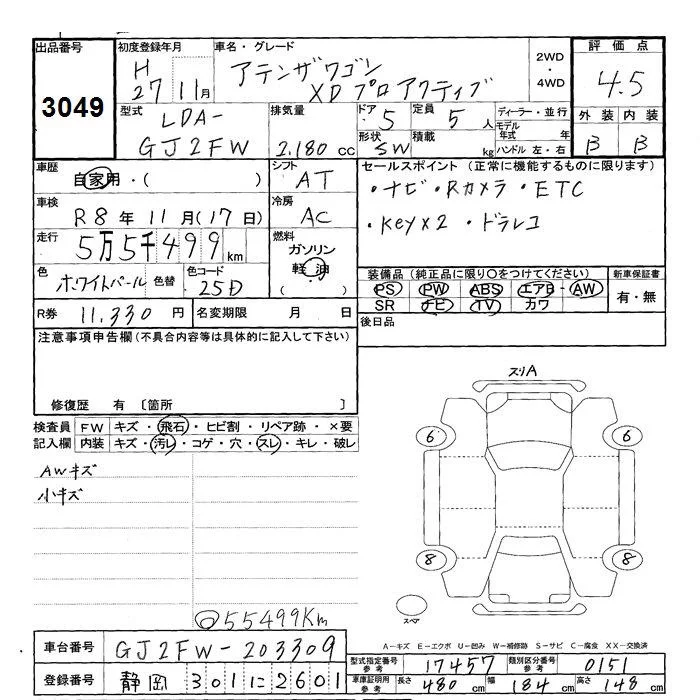 出品番号 初度登録年月 車名・グレード 評価点
3049 H 27 11月 アテンザワゴン XDプロアクティブ 2WD・4WD 4.5
型式 排気量 ドア 5 定員 5人 ディーラー・並行 外装 内装
LDA-GJ2FW 2.180cc 形状 SW 積載 kg モデル年式 年 ハンドル 左・右 B B
車歴 シフト セールスポイント (正常に機能するものに限ります)
自家用・( ) AT ・ナビ・Rカメラ・ETC
車検 冷房 ・Key×2・ドラレコ
R8年11月(17日) AC
走行 燃料
5万5千499km ガソリン
色 色替 色コード 軽油 装備品 (純正品に限り○をつけてください) 新車保証書
ホワイトパール 25D ( ) PS PW ABS エアB・AW 有・無
SR ナビ TV カワ
R券 11,330円 名変期限 月 日 後日品
注意事項申告欄(不具合内容等は具体的に記入して下さい)
修復歴 有 〔箇所 〕
スリA
検査員 FW キズ・飛石・ヒビ割・リペア跡・×要
記入欄 内装 キズ・汚レ・コゲ・穴・スレ・キレ・破レ
6 6
AWキズ
小キズ
8 8
スペア
55499Km
A-キズ E-エクボ U-凹み W-補修跡 S-サビ C-腐食 XX-交換済
車台番号 GJ2FW-203309 型式指定番号 参考 17457 類別区分番号 参考 0151
登録番号 静岡 301 に 2601 車庫証明用 参考 長さ 480cm 幅 184cm 高さ 148cm